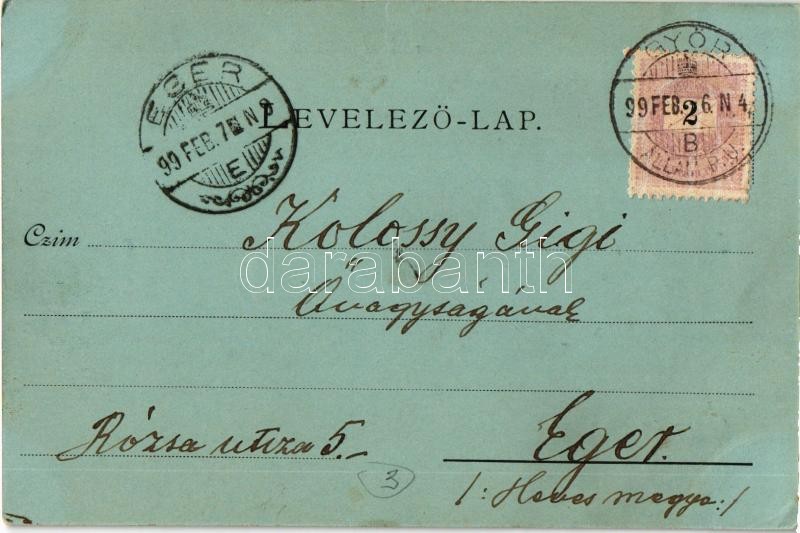 EGER
99 FEB. 7 N
E
LEVELEZŐ-LAP.
GYŐR
99 FEB. 6. N 4.
2
B
Czim
Kolossy Gigi
Őnagyságának
darabanth
Rózsa utcza 5.
Eger.
3
/: Heves megye :/